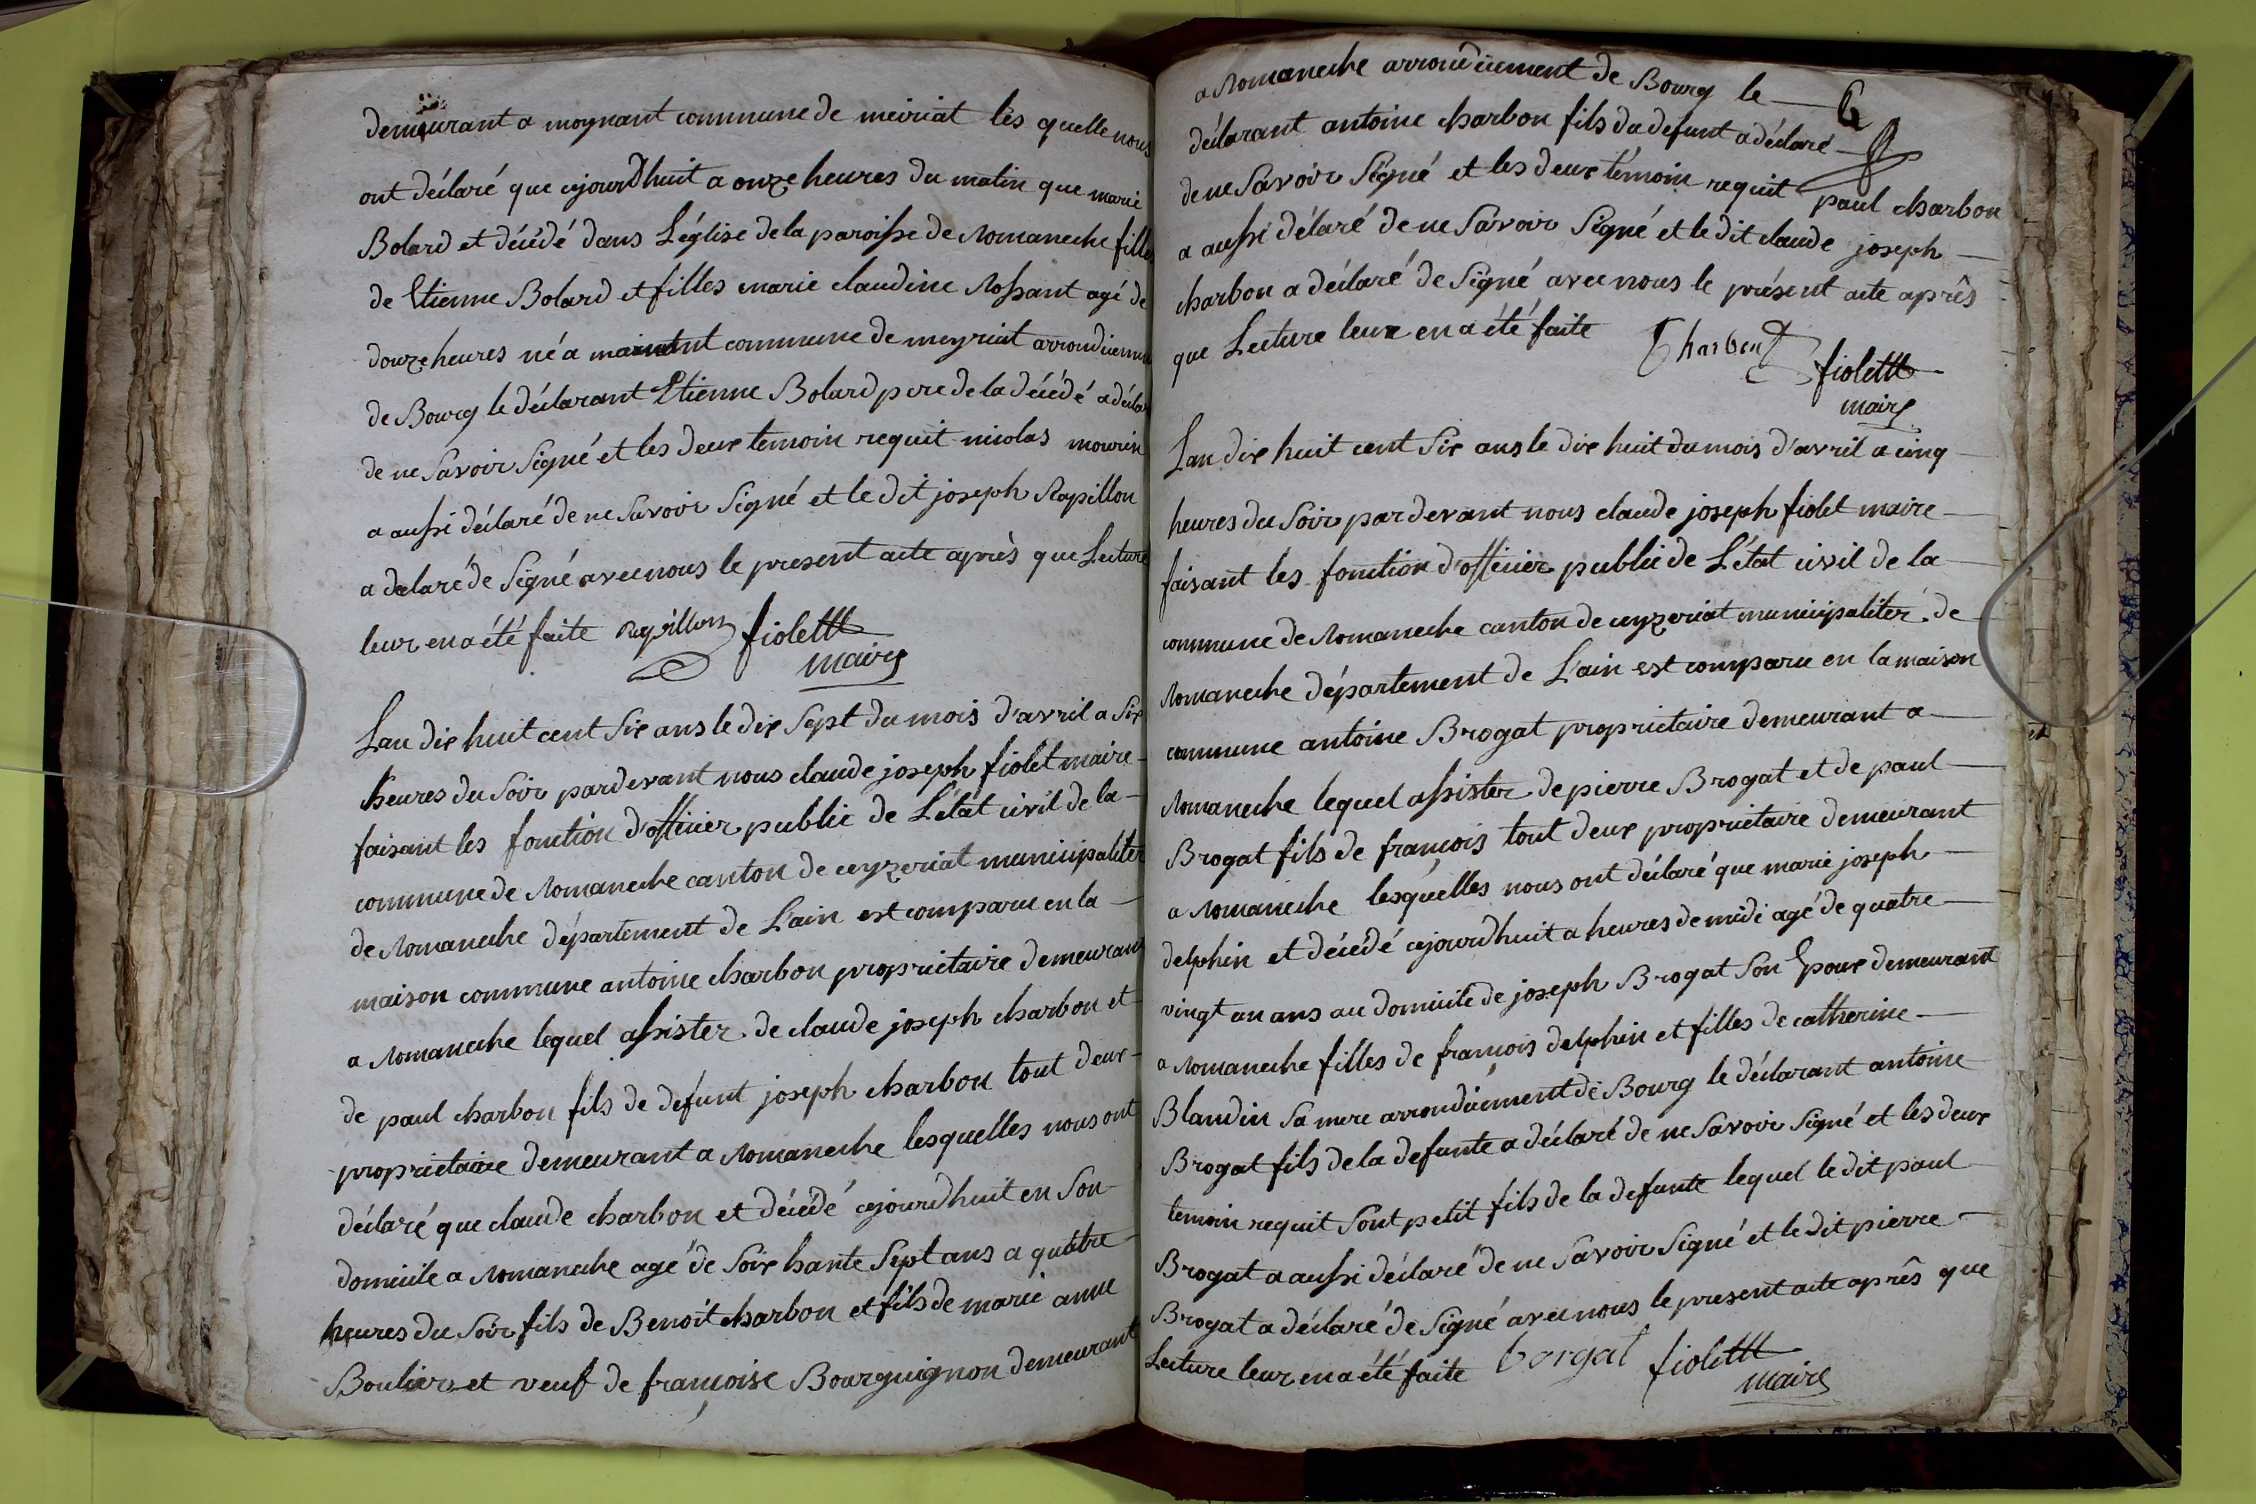 demeurant a moynant commune de meiriat les quelle nous
ont déclaré que cejourdhuit a onze heures du matin que marie
Bolard et décédé dans L'église de la paroisse de Romaneche filles
de Etienne Bolard et filles marie claudine Rossant agé de
douze heures né a commune de meyriat arrondicement
de Bourg le déclarant Etienne Bolard pere de la décédé a déclaré
de ne Savoir Signé et les deux temoin requit nicolas mourin
a aussi déclaré de ne Savoir Signé et le dit joseph Rapillon
a declaré de Signé avec nous le present acte après que Lecture
leur en a été faite Rapillon fiolet
maire
Lan dix huit cent Six ans le dix Sept du mois d'avril a Six
heures du Soir pardevant nous claude joseph fiolet maire
faisant les fonction d'officier public de L'état civil de la
commune de Romaneche canton de ceyzeriat municipaliter
de Romaneche département de L'ain est comparue en la
maison commune antoine charbon proprietaire demeurant
a Romaneche lequel assister de claude joseph charbon et
de paul charbon fils de defunt joseph charbon tout deux
proprietaire demeurant a Romaneche lesquelles nous ont
déclaré que claude charbon et décédé cejourdhuit en Son
domicile a Romaneche agé de Soixhante Sept ans a quatre
heures du Soir fils de Benoit charbon et fils de marie anne
Boulier et veuf de françoise Bourguignon demeurant
a Romaneche arrondicement de Bourg le
6
déclarant antoine charbon fils du defunt a déclaré
de ne Savoir Signé et les deux témoin requit paul charbon
a aussi déclaré de ne Savoir Signé et le dit claude joseph
charbon a déclaré de Signé avec nous le présent acte après
que Lecture leur en a été faite Charbon
fiolet
maire
Lan dix huit cent Six ans le dix huit du mois d'avril a cinq
heures du Soir pardevant nous claude joseph fiolet maire
faisant les fonction d'officier public de L'état civil de la
commune de Romaneche canton de ceyzeriat municipaliter de
Romaneche département de L'ain est comparue en la maison
commune antoine Brogat proprietaire demeurant a
Romaneche lequel assister de pierre Brogat et de paul
Brogat fils de françois tout deux proprietaire demeurant
a Romaneche lesquelles nous ont déclaré que marie joseph
delphin et décédé cejourdhuit a heures de midi agé de quatre
vingt un ans au domicile de joseph Brogat Son Epoux demeurant
a Romaneche filles de françois delphin et filles de catherine
Blandin Sa mere arrondicement de Bourg le déclarant antoine
Brogat fils de la defunte a déclaré de ne Savoir Signé et les deux
temoin requit Sont petit fils de la defunte lequel le dit paul
Brogat a aussi déclaré de ne Savoir Signé et le dit pierre
Brogat a déclaré de Signé avec nous le present acte après que
Lecture leur en a été faite borgat fiolet
maire